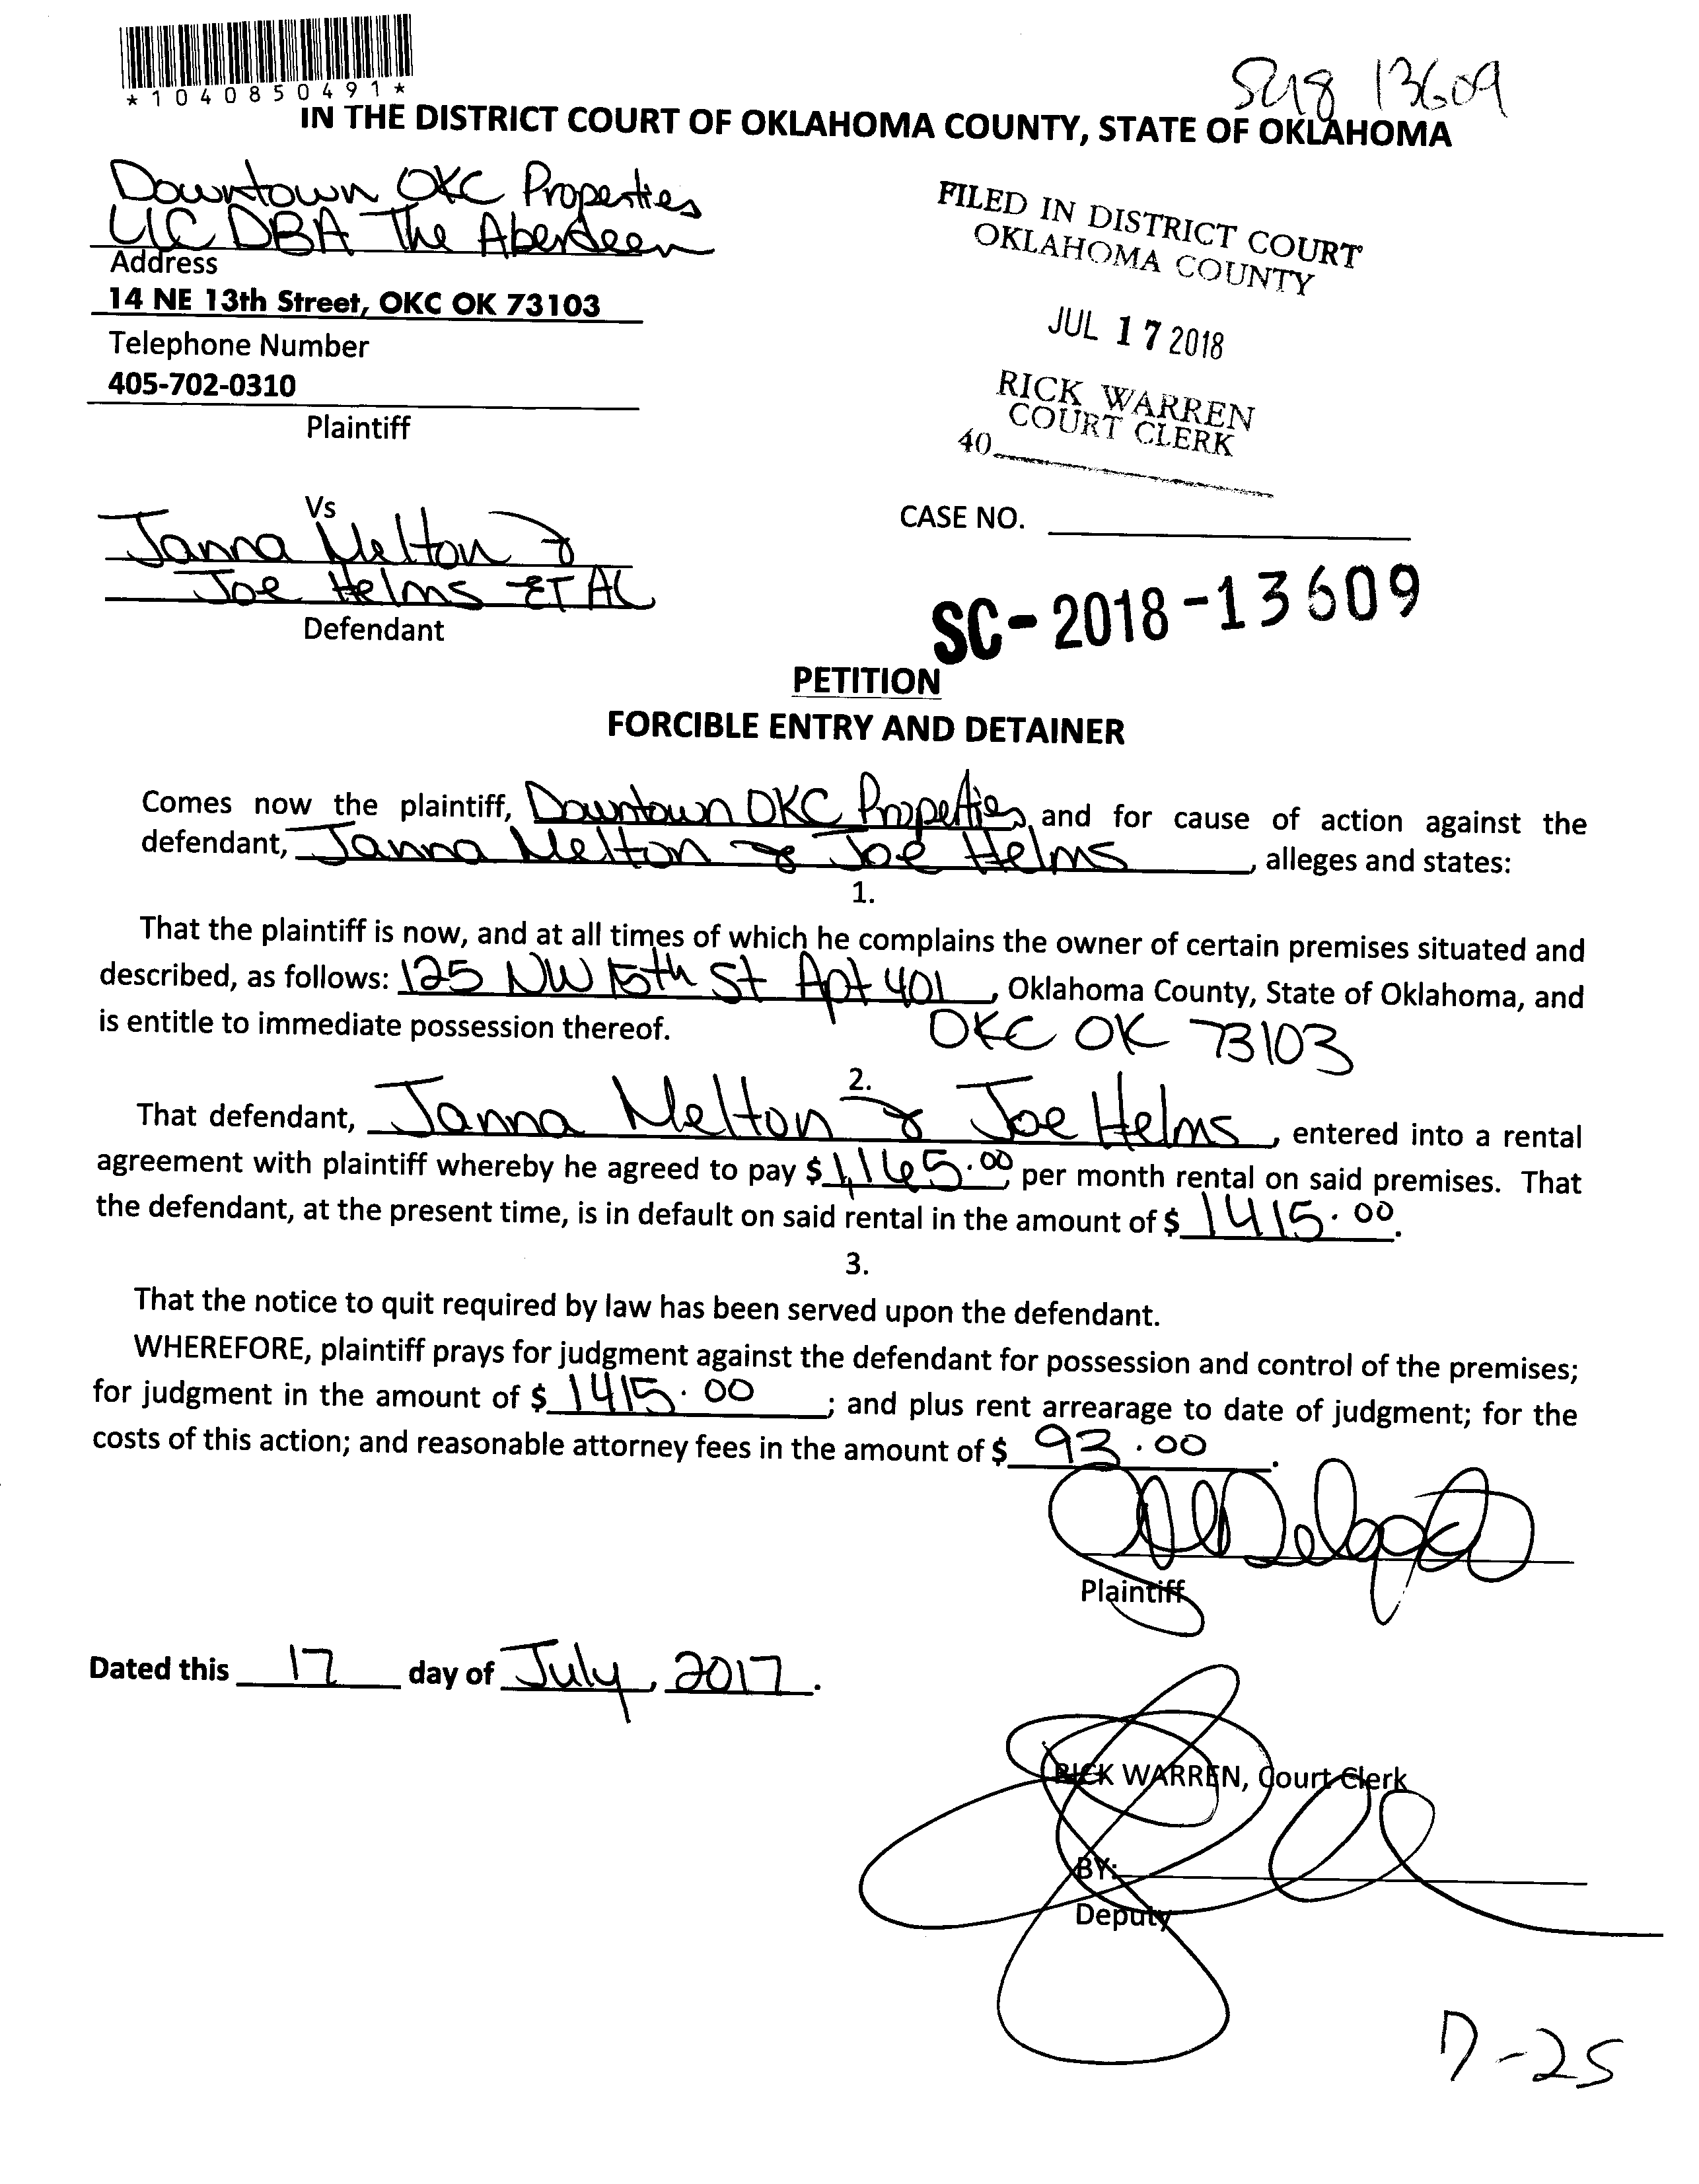 *1040850491*
SC18 13609
IN THE DISTRICT COURT OF OKLAHOMA COUNTY, STATE OF OKLAHOMA
Downtown OKC Properties
LLC DBA The Aberdeen
Address
14 NE 13th Street, OKC OK 73103
Telephone Number
405-702-0310
Plaintiff
FILED IN DISTRICT COURT
OKLAHOMA COUNTY
JUL 17 2018
RICK WARREN
COURT CLERK
40
Vs
Janna Melton &
Joe Helms ET AL
Defendant
CASE NO.
SC-2018-13609
PETITION
FORCIBLE ENTRY AND DETAINER
Comes now the plaintiff, Downtown OKC Properties, and for cause of action against the
defendant, Janna Melton & Joe Helms, alleges and states:
1.
That the plaintiff is now, and at all times of which he complains the owner of certain premises situated and
described, as follows: 125 NW 15th St Apt 401, Oklahoma County, State of Oklahoma, and
is entitle to immediate possession thereof. OKC OK 73103
2.
That defendant, Janna Melton & Joe Helms, entered into a rental
agreement with plaintiff whereby he agreed to pay $ 1,165.00 per month rental on said premises. That
the defendant, at the present time, is in default on said rental in the amount of $ 1415.00.
3.
That the notice to quit required by law has been served upon the defendant.
WHEREFORE, plaintiff prays for judgment against the defendant for possession and control of the premises;
for judgment in the amount of $ 1415.00; and plus rent arrearage to date of judgment; for the
costs of this action; and reasonable attorney fees in the amount of $ 93.00.
Plaintiff
Dated this 17 day of July, 2017.
RICK WARREN, Court Clerk
BY:
Deputy
7-25